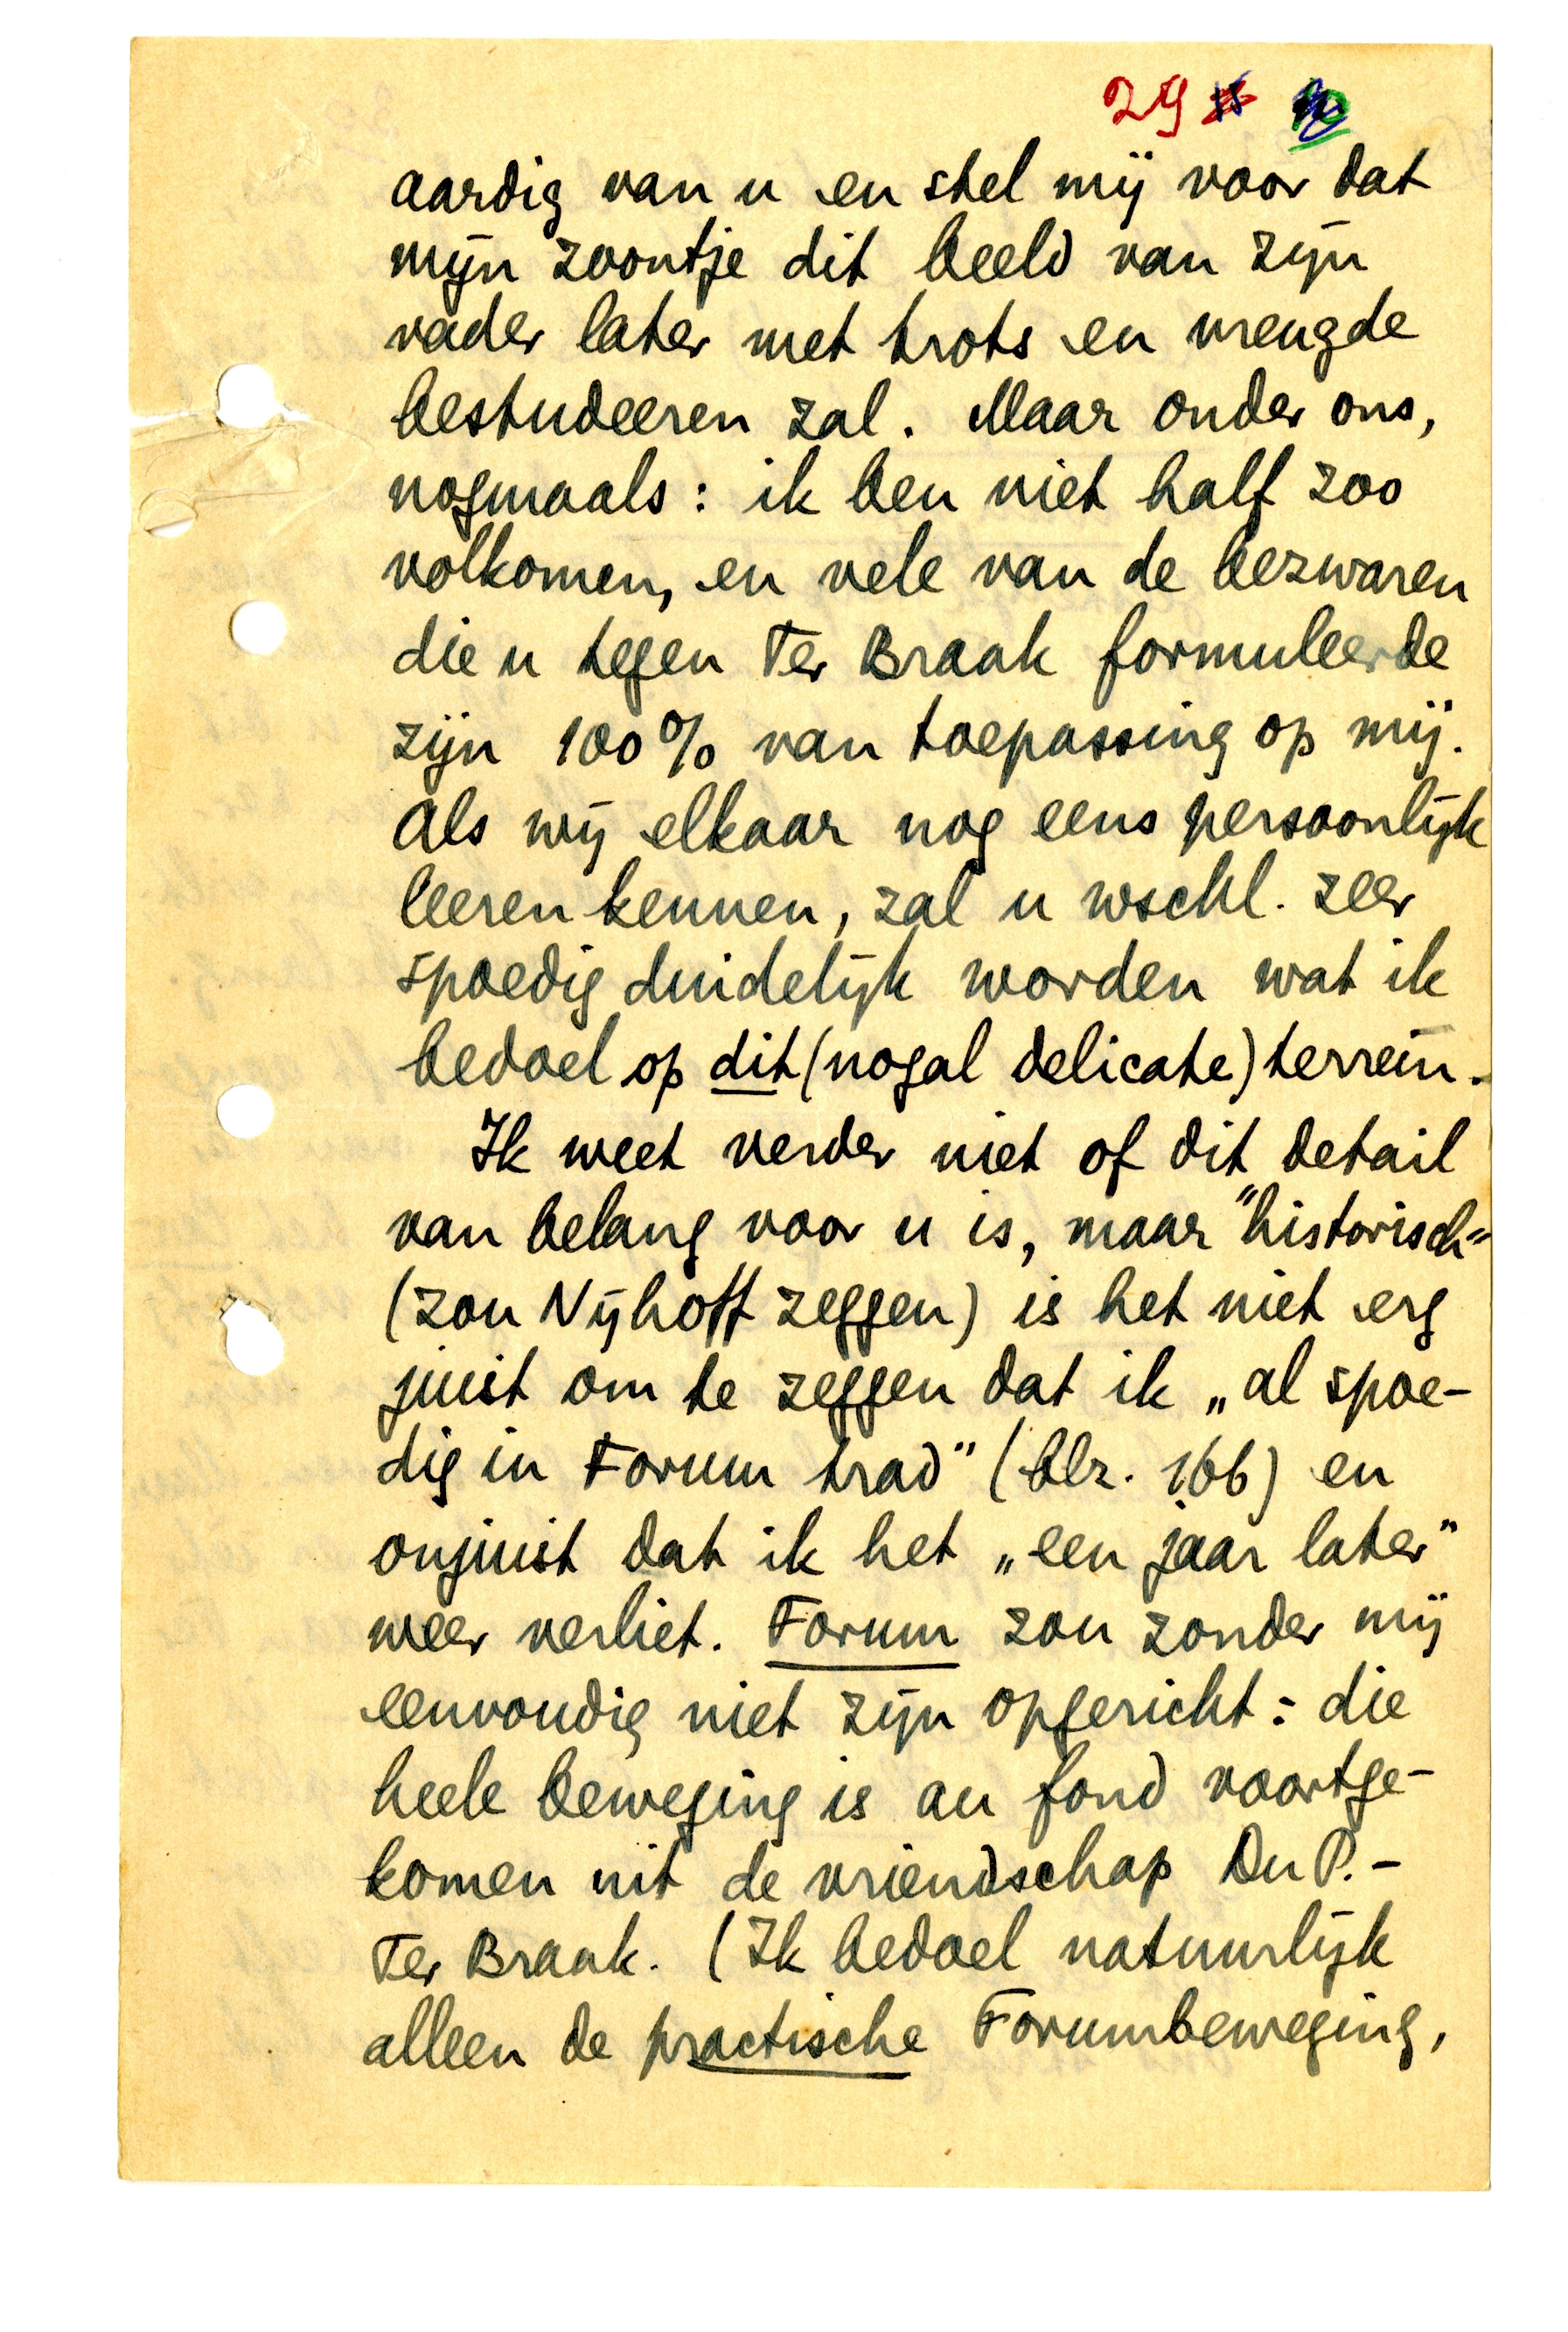 29
aardig van u en stel mij voor dat
mijn zoontje dit beeld van zijn
vader later met trots en vreugde
bestudeeren zal. Maar onder ons,
nogmaals: ik ben niet half zoo
volkomen, en vele van de bezwaren
die u tegen Ter Braak formuleerde
zijn 100% van toepassing op mij.
Als wij elkaar nog eens persoonlijk
leeren kennen, zal u wschl. zeer
spoedig duidelijk worden wat ik
bedoel op dit (nogal delicate) terrein.
Ik weet verder niet of dit detail
van belang voor u is, maar "historisch"
(zou Nijhoff zeggen) is het niet erg
juist om te zeggen dat ik „al spoe-
dig in Forum trad" (blz. 166) en
onjuist dat ik het „een jaar later"
weer verliet. Forum zou zonder mij
eenvoudig niet zijn opgericht: die
heele beweging is au fond voortge-
komen uit de vriendschap Du P.-
Ter Braak. (Ik bedoel natuurlijk
alleen de practische Forumbeweging,